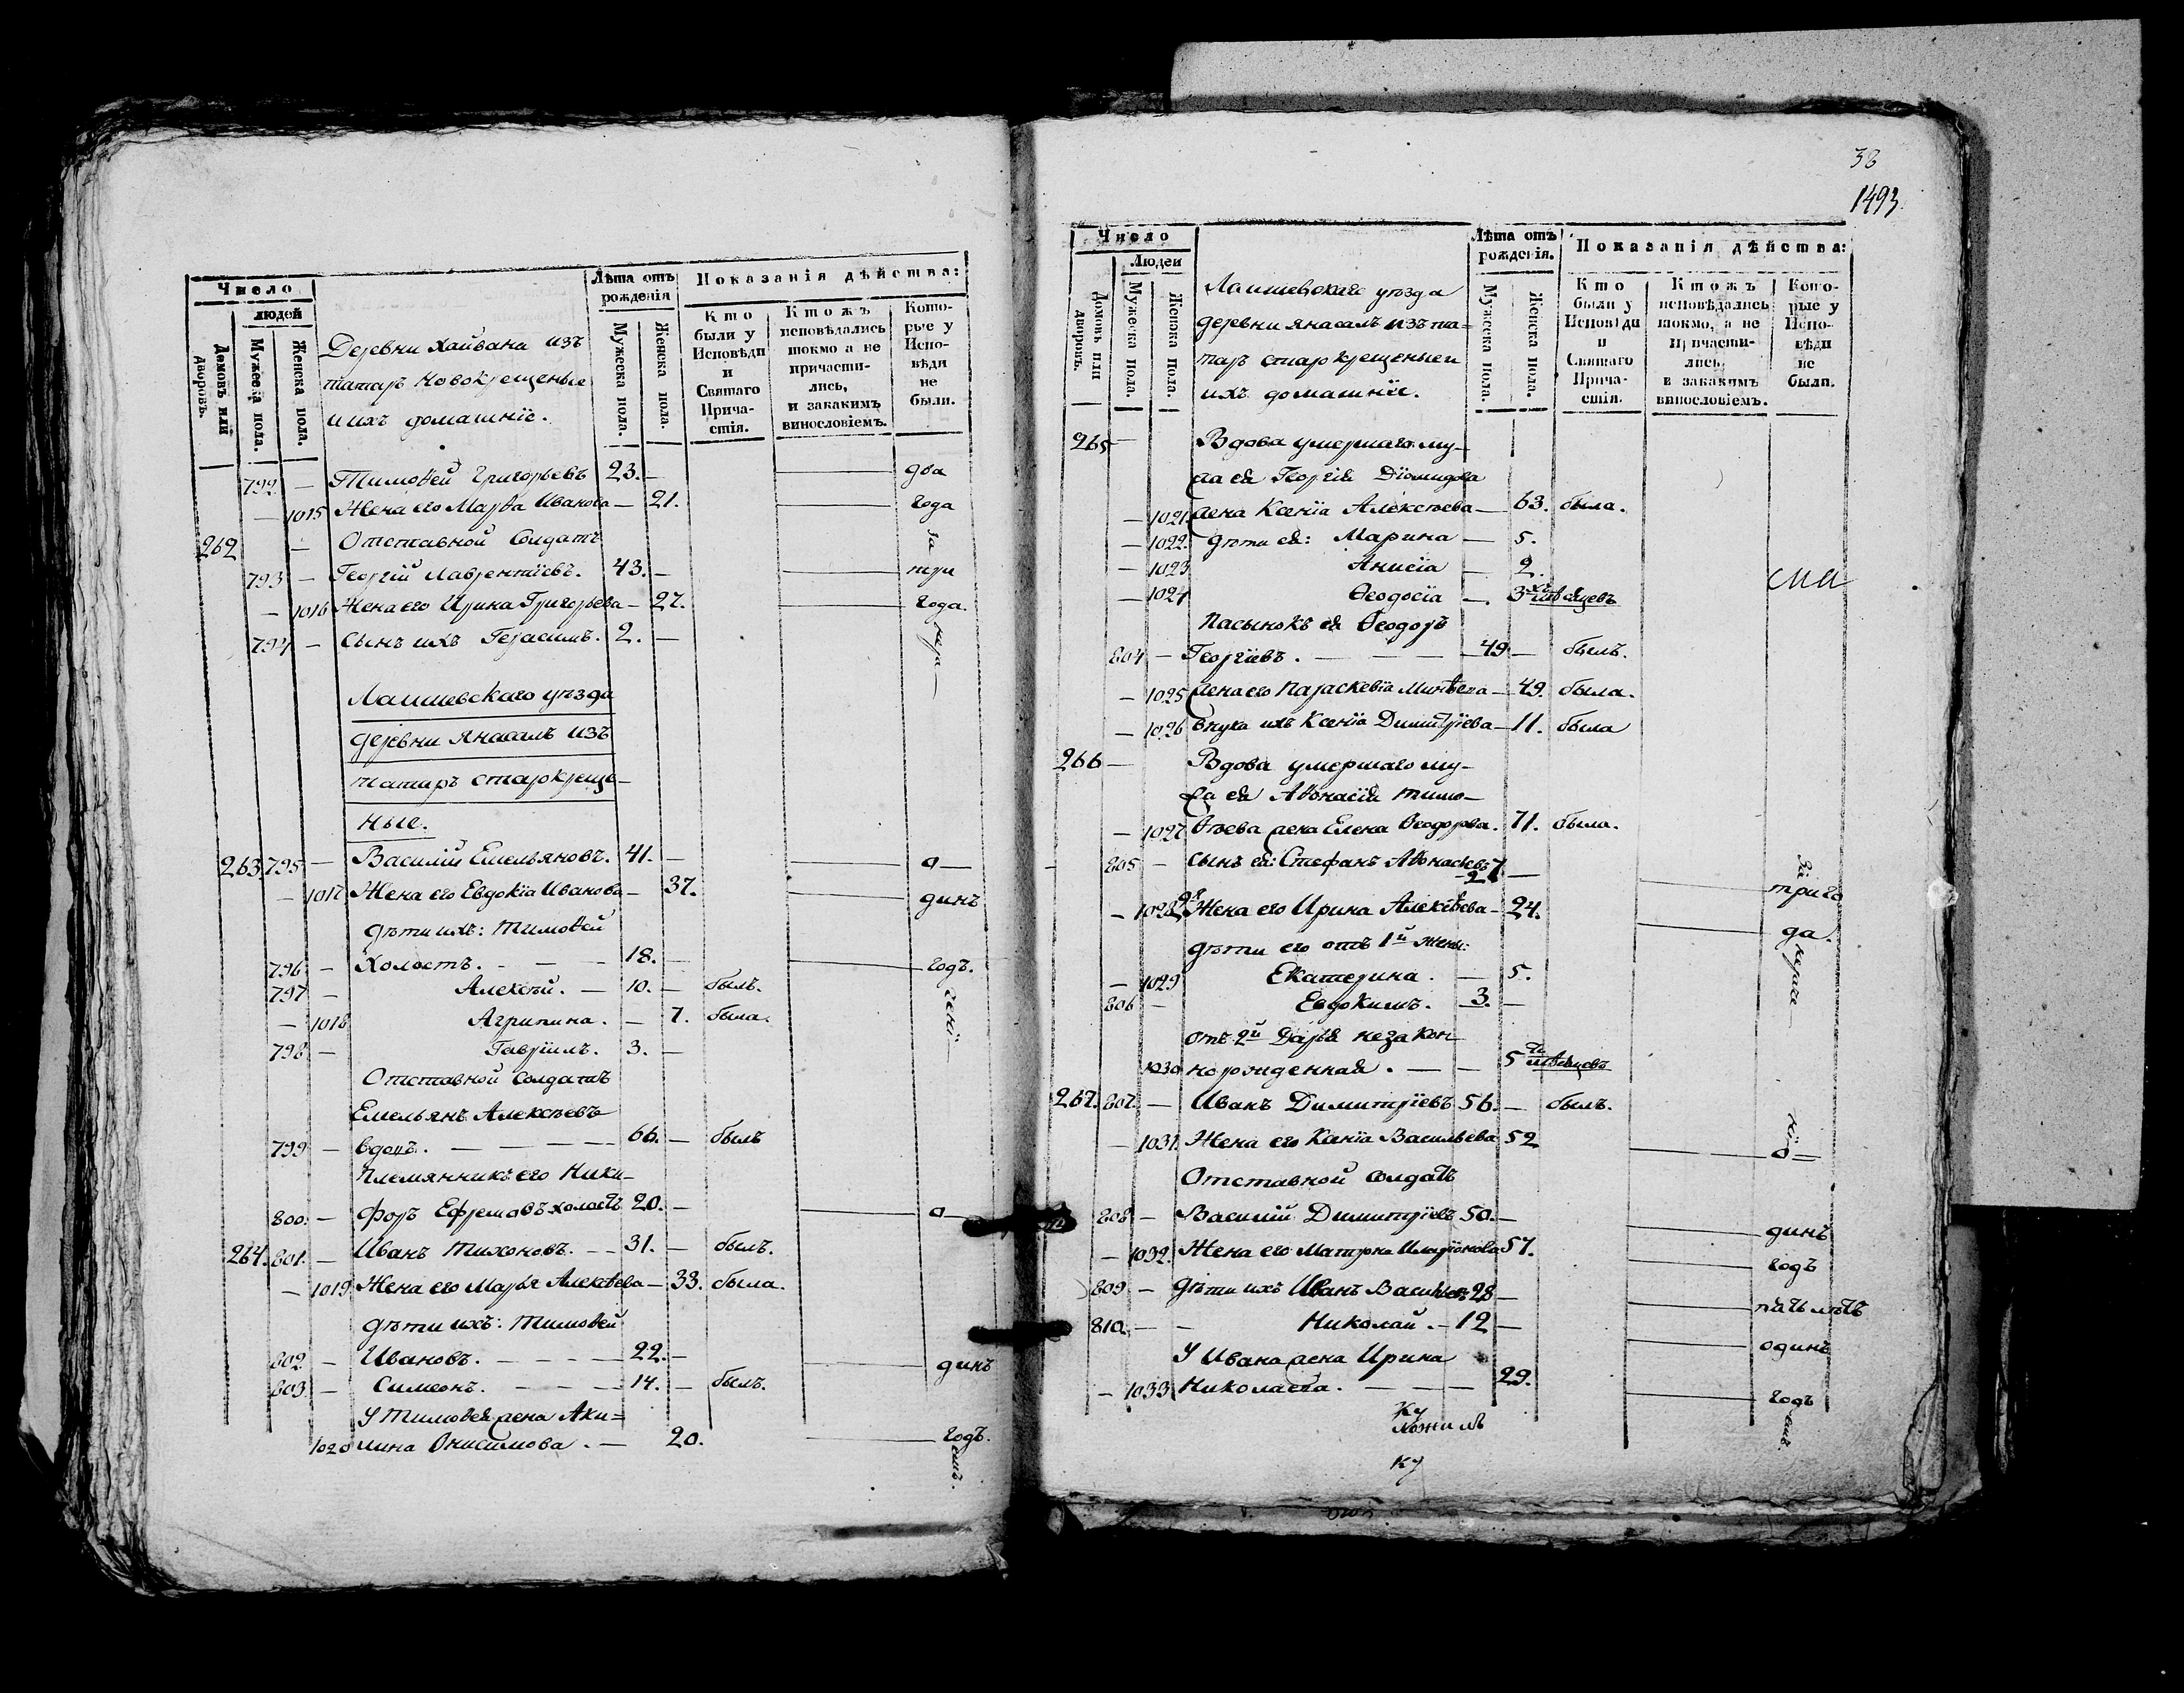 Число
людей
Домовъ или дворовъ.
Мужеска пола.
Женска пола.
Деревни Хайвана изъ
татаръ новокрещеные
и ихъ домашнїе.
Лѣта отъ
рожденія
Мужеска пола.
Женска пола.
Показанія дѣйства:
Кто
были у
Исповѣди
и
Святаго
Прича-
стія.
Ктожъ
исповѣдались
токмо а не
причасти-
лись,
и закакимъ
винословіемъ.
Кото-
рые у
Испо-
вѣди
не
были.
792 — Тимоѳей Григорьевъ 23. — два
— 1015 Жена его Марѳа Иванова — 21. года
262 — Отставной Солдатъ за
793 — Георгїй Лаврентїевъ. 43. — три
— 1016 Жена его Ирина Григорьева — 27. года.
794 — сынъ ихъ Герасимъ. 2. —
Лаишевскаго уѣзда
деревни Янасалъ изъ
татаръ старокреще-
ные.
263. 795 — Василїй Емельяновъ. 41. — о —
— 1017 Жена его Евдокїа Иванова — 37. динъ
дѣти ихъ: Тимоѳей
796 — холостъ. — 18. — годъ.
797 — Алексѣй. — 10. — былъ.
— 1018 Агрипина. — 7. была.
798 — Гаврїилъ. 3. —
Отставной солдатъ
Емельянъ Алексѣевъ
799 — вдовъ. — 66. — былъ
племянникъ его Ники-
800. — форъ Ефремовъ холостъ 20. — о —
264. 801. — Иванъ Тихоновъ. — 31. — былъ.
— 1019 Жена его Марья Алексѣева — 33. была.
дѣти ихъ: Тимоѳей
802 — Ивановъ. — 22. — динъ
803. — Симеонъ. — 14. — былъ.
У Тимоѳея жена Аки=
1020 лина Онисимова. — 20. годъ.
38
1493
Число
Людей
Домовъ или дворовъ.
Мужеска пола.
Женска пола.
Лаишевскаго уѣзда
деревни Янасалъ изъ та=
таръ старокрещеные и
ихъ домашнїе.
Лѣта отъ
рожденія.
Мужеска пола.
Женска пола.
Показанія дѣйства:
Кто
были у
Исповѣди
и
Святаго
Прича-
стія.
Ктожъ
исповѣдались
токмо, а не
причасти-
лись,
и закакимъ
винословіемъ.
Кото-
рые у
Испо-
вѣди
не
были.
265 — Вдова умершаго му-
жа ея Георгїя Дїомидова
— 1021. жена Ксенїа Алексѣева — 63. была.
— 1022. дѣти ея: Марина — 5.
— 1023 Анисїа — 2.
— 1024 Ѳеодосїа — 3хъ мѣсяцевъ
Пасынокъ ея Ѳеодоръ
804 — Георгїевъ. — 49 — былъ.
— 1025 жена его Параскевїа — 49. была.
— 1026 внука ихъ Ксенїа Димитрїева — 11. была
266 — Вдова умершаго му-
жа ея Аѳонасїя Тимо-
— 1027 ѳѣева жена Елена Ѳеодорова. 71. была.
805 — сынъ ея: Стефанъ Аѳонасьевъ 27 — за
— 1028 2я Жена его Ирина Алексѣева — 24. три го
дѣти его отъ 1й жены: да.
— 1029 Екатерина. — 5.
806 — Евдокимъ. 3. —
отъ 2й Дарья незакон-
1030 норожденная. — 5ти мѣсяцевъ
267. 807. — Иванъ Димитрїевъ 56. — былъ.
— 1031. Жена его Ксенїа Васильева 52 о=
Отставной солдатъ
808 — Василїй Димитрїевъ 50. — динъ
— 1032. Жена его Матрона Иларїонова 57. годъ
809 — дѣти ихъ Иванъ Васильевъ 28 — пять лѣтъ
810. — Николай. — 12 — одинъ
У Ивана жена Ирина
— 1033 Николаева. — 29. годъ